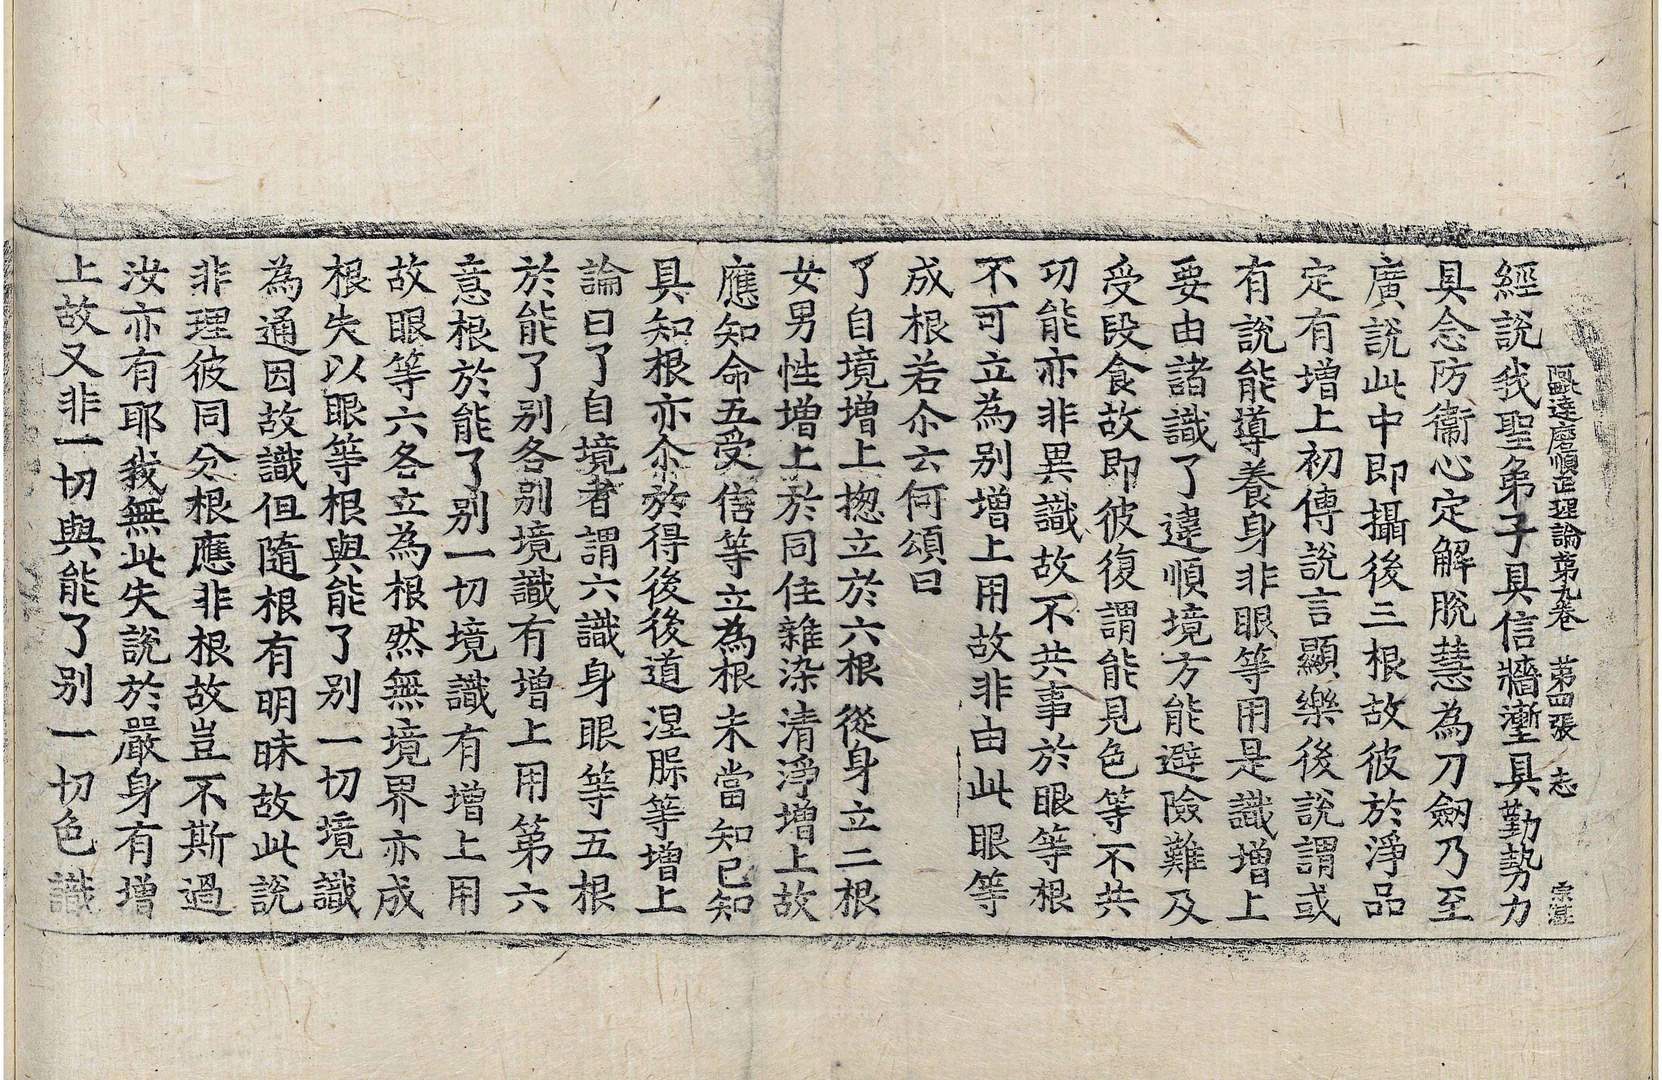 阿毗達磨順正理論第九卷　第四張　志　宗湛
經說我聖弟子具信牆塹具勤勢力
具念防衞心定解脫慧為刀劒乃至
廣說此中即攝後三根故彼於淨品
定有增上初傳說言顯樂後說謂或
有說能導養身非眼等用是識增上
要由諸識了違順境方能避險難及
受段食故即彼復謂能見色等不共
功能亦非異識故不共事於眼等根
不可立為別增上用故非由此眼等
成根若尒云何頌曰
了自境增上揔立於六根從身立二根
女男性增上於同住雜染清淨增上故
應知命五受信等立為根未當知已知
具知根亦尒於得後後道涅槃等增上
論曰了自境者謂六識身眼等五根
於能了別各別境識有增上用第六
意根於能了別一切境識有增上用
故眼等六各立為根然無境界亦成
根失以眼等根與能了別一切境識
為通因故識但隨根有明昧故此說
非理彼同分根應非根故豈不斯過
汝亦有耶我無此失說於嚴身有增
上故又非一切與能了別一切色識